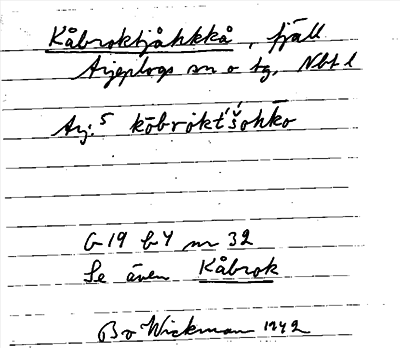 Kåbroktjåhkkå, fjäll
Arjeplogs sn o tg, Nbt l
Arj. 5 kōbrokt́š́ohko
G 19 b 4 nr 32
Se även Kåbrok
Bo Wickman 1942